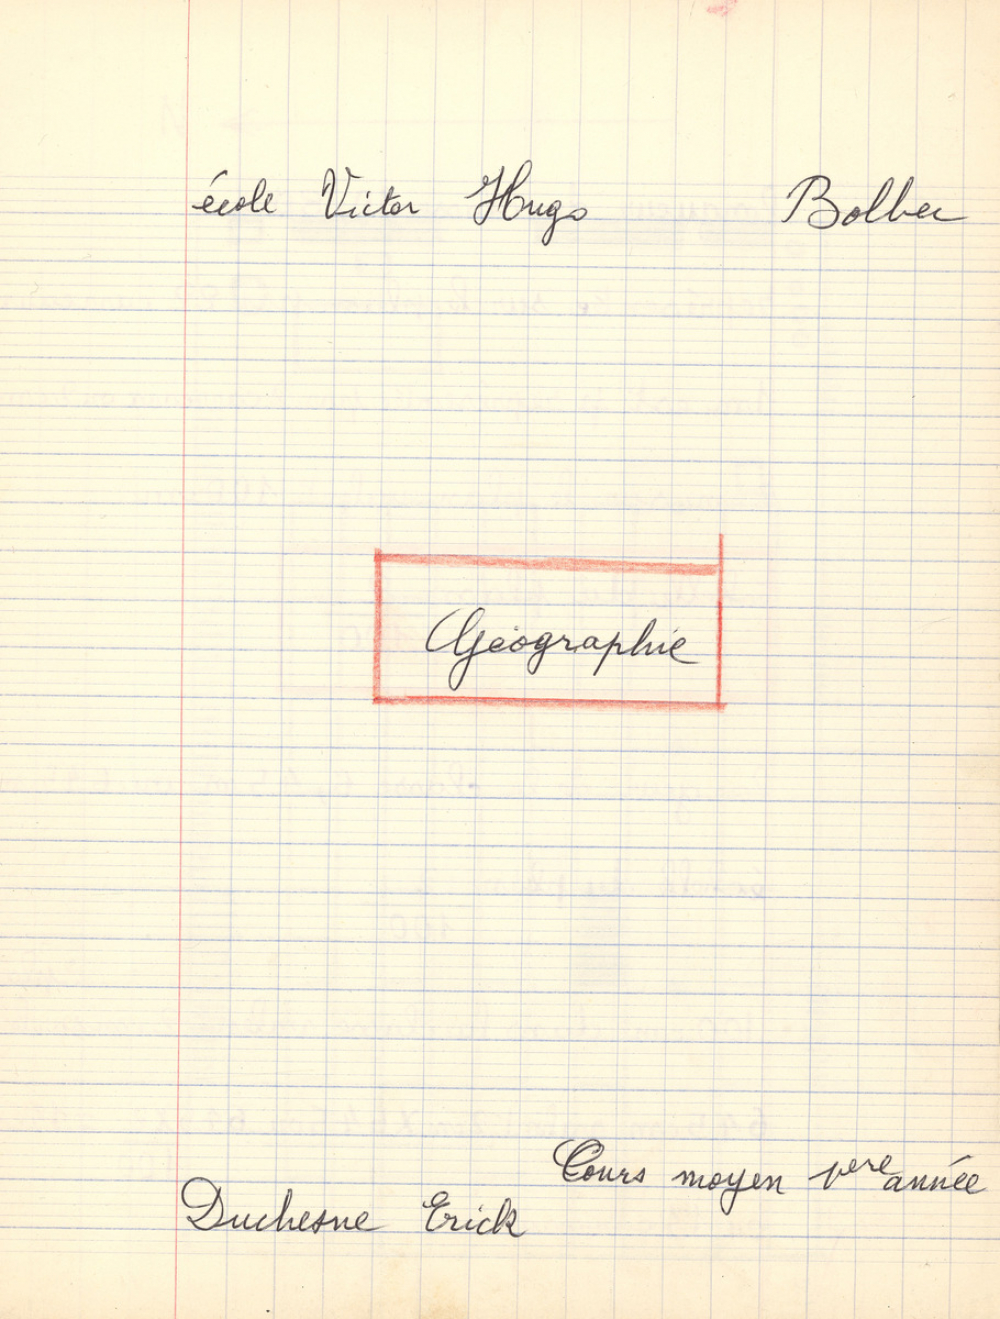 école Victor Hugo Bolbec
Géographie
Cours moyen 1ere année
Duchesne Erick